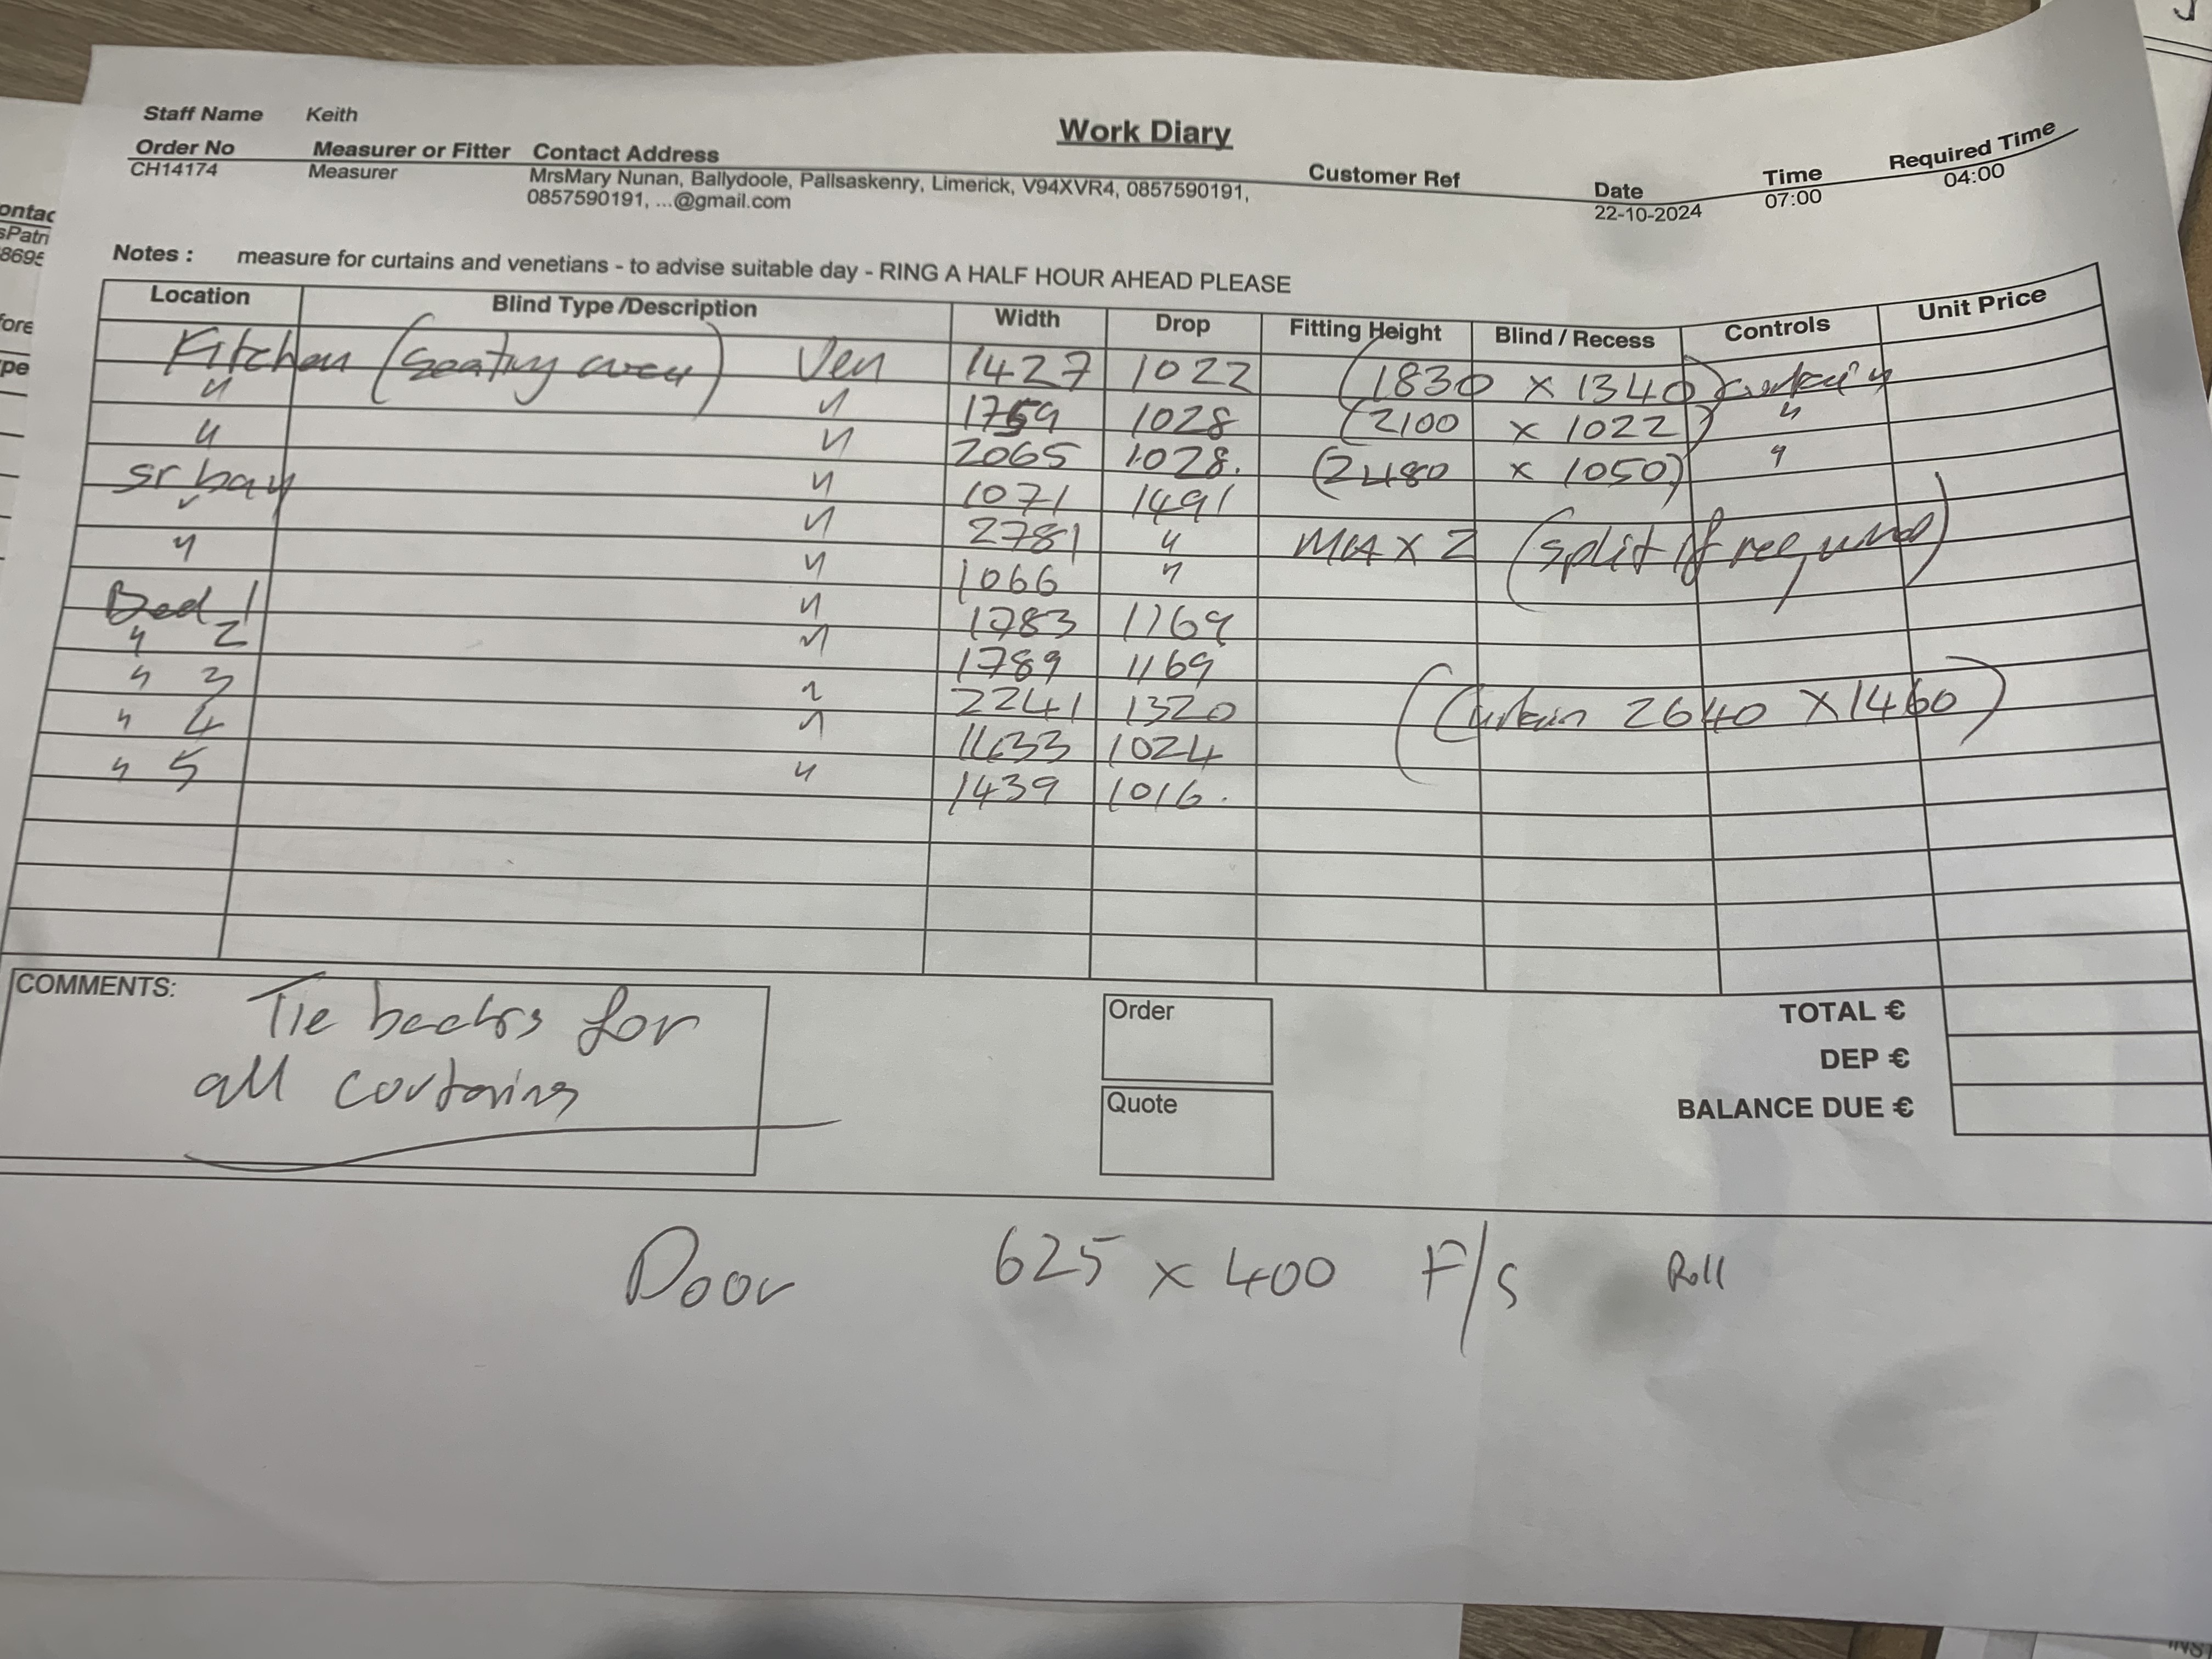 Staff Name Keith
Work Diary
Order No Measurer or Fitter Contact Address Customer Ref Date Time Required Time
CH14174 Measurer MrsMary Nunan, Ballydoole, Pallsaskenry, Limerick, V94XVR4, 0857590191, 22-10-2024 07:00 04:00
0857590191, ...@gmail.com
Notes : measure for curtains and venetians - to advise suitable day - RING A HALF HOUR AHEAD PLEASE
Location Blind Type /Description Width Drop Fitting Height Blind / Recess Controls Unit Price
Kitchen (seating area) Ven 1427 1022 (1830 x 1340) curtain
" " 1759 1028 (2100 x 1022) "
" " 2065 1028. (2480 x 1050) "
sr bay " 1071 1491
" " 2781 " MAX 2 (split if required)
" " 1066 "
Bed 1 " 1783 1169
" 2 " 1789 1169
" 3 " 2241 1320 (Curtain 2640 X 1460)
" 4 " 1024
" 5 " 1439 1016.
COMMENTS:
Tie backs for
all curtains
Order
Quote
TOTAL €
DEP €
BALANCE DUE €
Door 625 x 400 F/S Roll
ontac
sPatri
8695
fore
pe